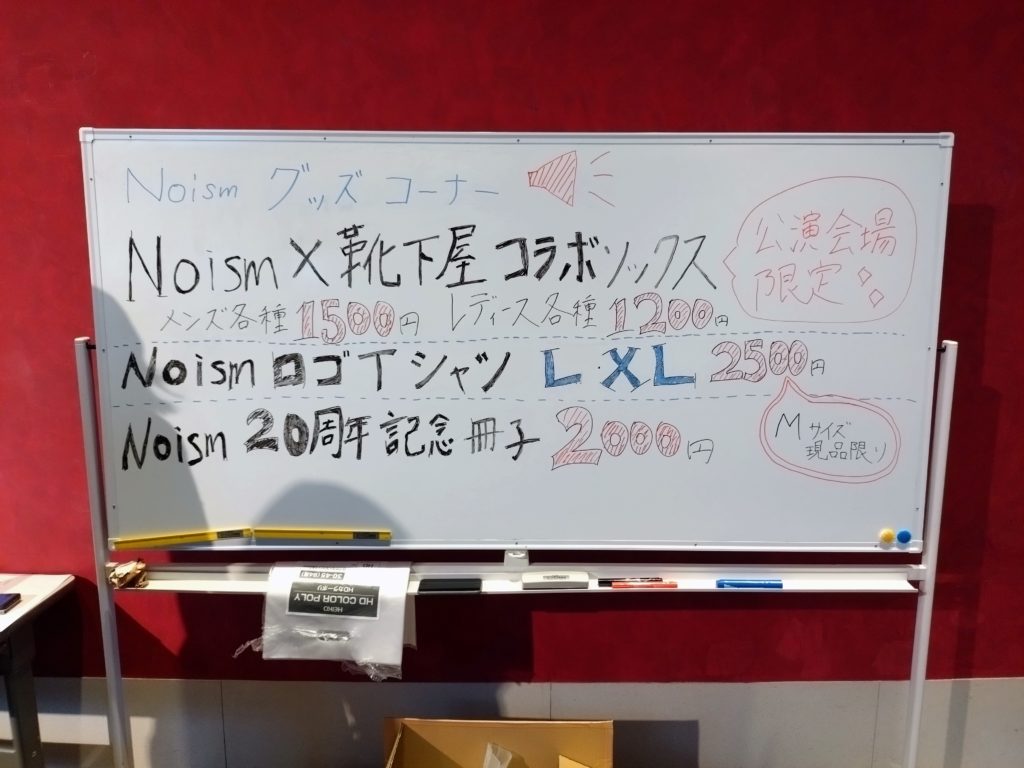 Noism グッズ コーナー
Noism×靴下屋 コラボソックス
公演会場
限定
メンズ各種 1500円 レディース各種 1200円
Noism ロゴTシャツ L・XL 2500円
Mサイズ
現品限り
Noism 20周年 記念 冊子 2000円
HEIKO
HD COLOR POLY
HDカラーポリ